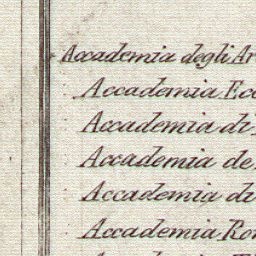 Accademia degli Ar
Accademia Ecc
Accademia di
Accademia de
Accademia di
Accademia Rom